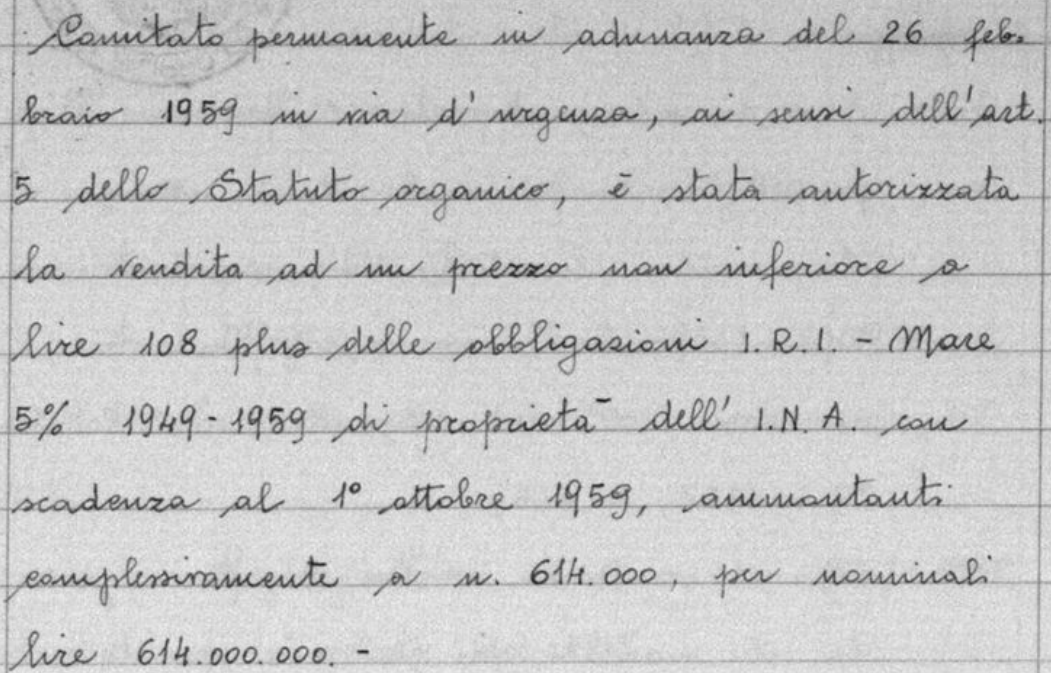 Comitato permanente in adunanza del 26 feb-
braio 1959 in via d'urgenza, ai sensi dell'art.
5 dello Statuto organico, è stata autorizzata
la vendita ad un prezzo non inferiore a
lire 108 plus delle obbligazioni I.R.I. - Mare
5% 1949-1959 di proprietà dell' I.N.A. con
scadenza al 1° ottobre 1959, ammontanti
complessivamente a n. 614.000, per nominali
lire 614.000.000.-